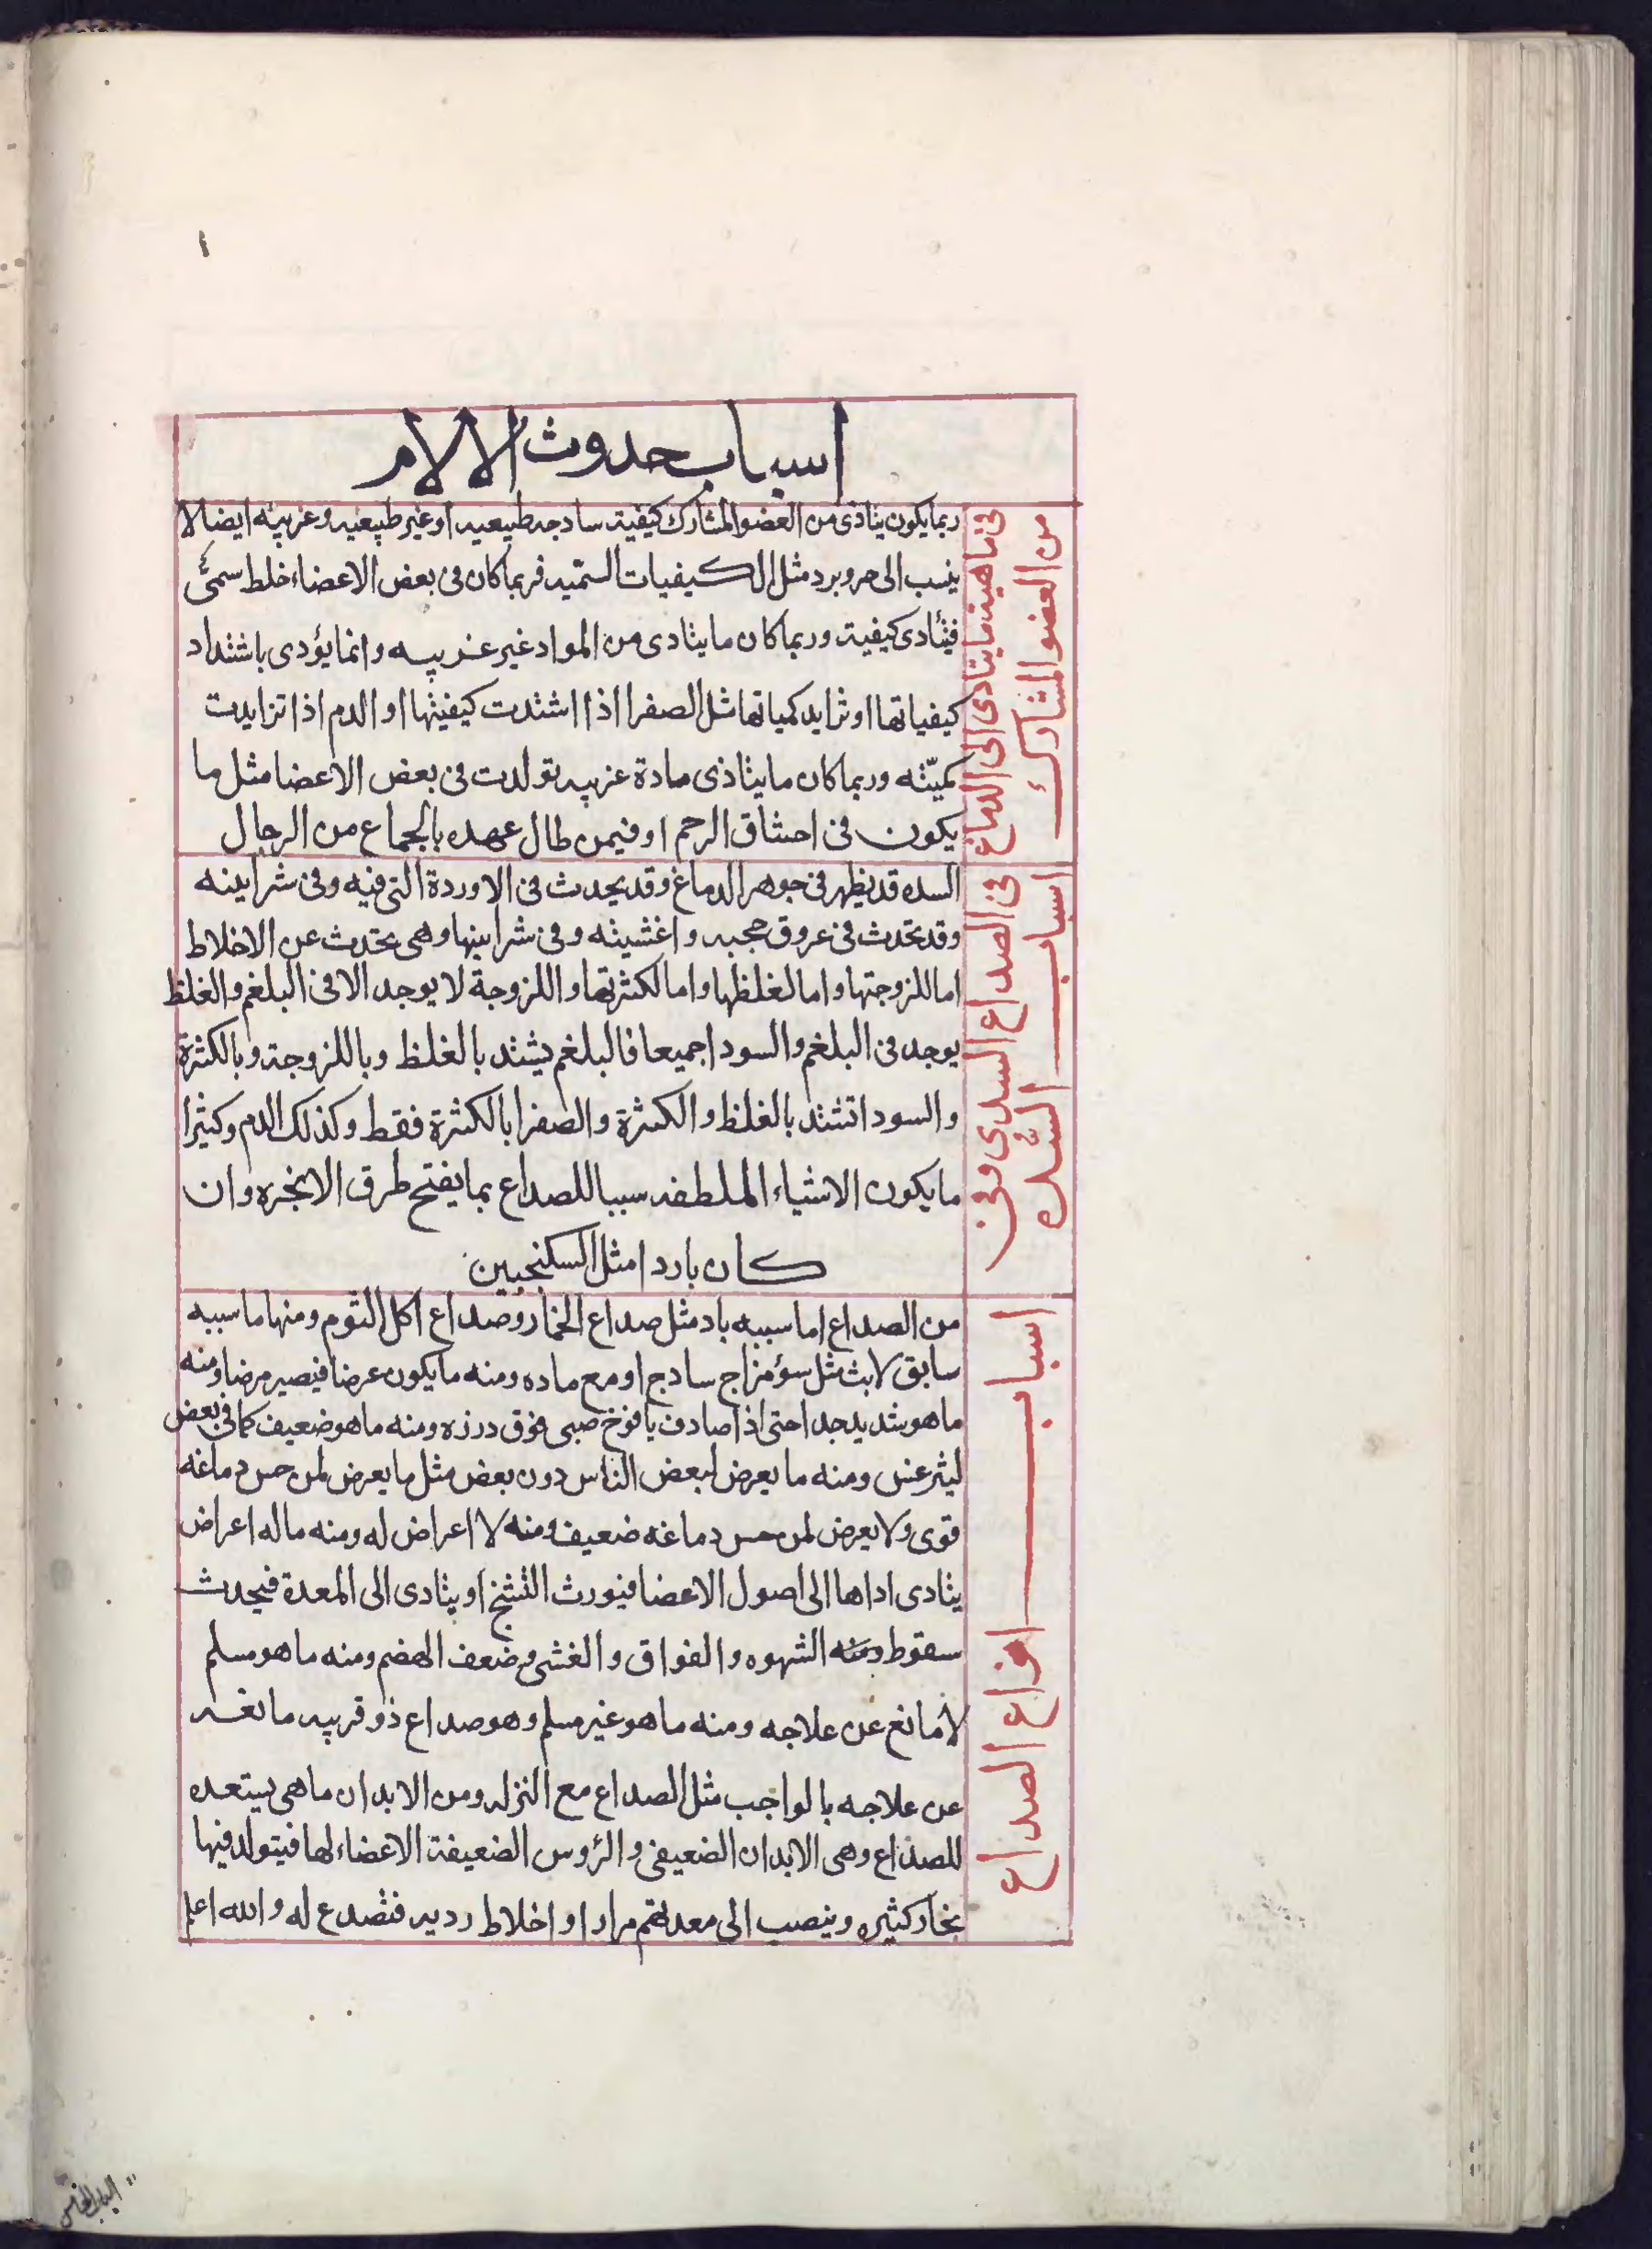 ١
اسباب حدوث الالام
فى ماهية ما يتادى الى الدماغ
من العضو المشارك
ربما يكون يتاذى من العضو المشارك كيفية ساذجه طبيعيه او غير طبيعيه وغريبه ايضا لا
ينسب الى حر وبرد مثل الكيفيات السمّيه فربما كان فى بعض الاعضاء خلط سمىّ
فيتأدى كيفية وربما كان ما يتادى من المواد غير غريبه وانما يؤدى باشتداد
كيفياتها او تزايد كمياتها مثل الصفرا اذا اشتدت كيفيتها او الدم اذا تزايدت
كميّته وربما كان ما يتاذى مادة غريبه تولدت فى بعض الاعضا مثل ما
يكون فى احتناق الرحم او فيمن طال عهده بالجماع من الرجال
اسباب السدّه
فى الصداع السدى وفى
السده قد يظهر فى جوهر الدماغ وقد يحدث فى الاوردة التى فيه وفى شرايينه
وقد تحدث فى عروق حجبه واغشيته وفى شرايينها وهى تحدث عن الاخلاط
اما للزوجتها واما لغلظها واما لكثرتها واللزوجة لا يوجد الا فى البلغم والغلظ
يوجد فى البلغم والسودا جميعا فالبلغم يشتد بالغلظ وباللزوجة وبالكثرة
والسودا تشتد بالغلظ والكثرة والصفرا بالكثرة فقط وكذلك الدم وكثيرا
ما يكون الاشياء الملطفه سببا للصداع بما يفتح طرق الابخره وان
كان باردا مثل السكنجبين
اسباب انواع الصداع
من الصداع اما سببه باد مثل صداع الخمار وصداع اكل الثوم ومنها ما سببه
سابق لابث مثل سؤ مزاج سادج او مع ماده ومنه ما يكون عرضا فيصير مرضا ومنه
ما هو شديد جدا حتى اذا صادف يافوخ صبى فوق درزه ومنه ما هو ضعيف كما فى بعض
ليثرغس ومنه ما يعرض لبعض الناس دون بعض مثل ما يعرض لمن حس دماغه
قوى ولا يعرض لمن حس دماغه ضعيف ومنه لا اعراض له ومنه ما له اعراض
يتادى اداها الى اصول الاعضا فيورث التشنج او يتادى الى المعدة فيحدث
سقوط ومنه الشهوه والفواق والغشى وضعف الهضم ومنه ما هو مسلم
لا مانع عن علاجه ومنه ما هو غير مسلم وهو صداع ذو قريبه مانعه
عن علاجه بالواجب مثل الصداع مع النزله ومن الابدان ما هى يستعده
للصداع وهى الابدان الضعيفى والرؤس الضعيفة الاعضاء لها فيتولد فيها
بخار كثيره وينصب الى معدتهم مرارا او اخلاط رديه فتصدع له والله اعلم
الباب الخامس